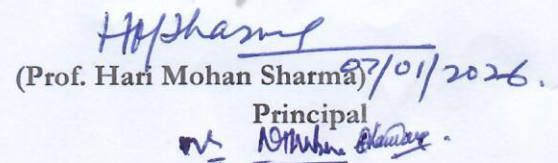 HMSharma
(Prof. Hari Mohan Sharma) 07/01/2026.
Principal